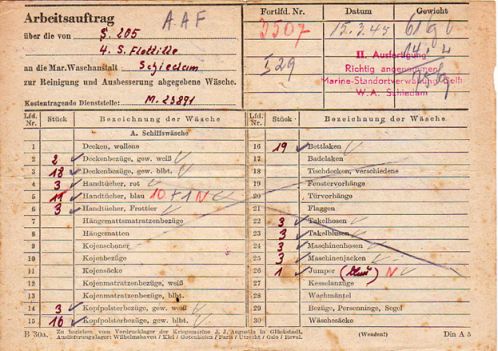 Arbeitsauftrag
AAF
über die von S. 205
4. S. Flottille
an die Mar. Waschanstalt Schiedam
zur Reinigung und Ausbesserung abgegebene Wäsche.
Kostentragende Dienststelle: M. 23891
Fortlfd. Nr.
3507
I 29
Datum
15.3.45
Gewicht
II. Ausfertigung
Richtig angenommen
Marine-Standortverwaltung Delft
W. A. Schiedam
Lfd. Nr. Stück Bezeichnung der Wäsche
A. Schiffswäsche
1 Decken, wollene
2 2 Deckenbezüge, gew. weiß
3 18 Deckenbezüge, gew. blbt.
4 3 Handtücher, rot
5 19 Handtücher, blau 10 + 1 N
6 3 Handtücher, Frottier
7 Hängemattsmatratzenbezüge
8 Hängematten
9 Kojenschoner
10 Kojenbezüge
11 Kojensäcke
12 Kojenmatratzenbezüge, weiß
13 Kojenmatratzenbezüge, blbt.
14 3 Kopfpolsterbezüge, gew. weiß
15 16 Kopfpolsterbezüge, gew. blbt.
Lfd. Nr. Stück Bezeichnung der Wäsche
16 19 Bettlaken
17 Badelaken
18 Tischdecken, verschiedene
19 Fenstervorhänge
20 Türvorhänge
21 Flaggen
22 3 Takelhosen
23 3 Takelblusen
24 3 Maschinenhosen
25 3 Maschinenjacken
26 1 Jumper (blau) N
27 Kesselanzüge
28 Wachmäntel
29 Bezüge, Persenninge, Segel
30 Wäschesäcke
B 30a. Zu beziehen vom Vordrucklager der Kriegsmarine J. J. Augustin in Glückstadt.
Auslieferungslager: Wilhelmshaven / Kiel / Gotenhafen / Paris / Utrecht / Oslo / Reval.
(Wenden!)
Din A 5